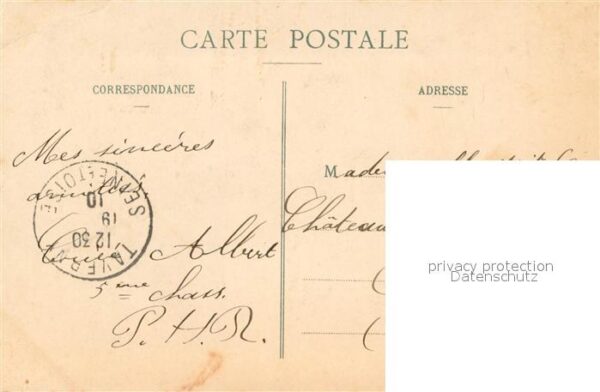 CARTE POSTALE
CORRESPONDANCE
ADRESSE
Mes sincères
amitiés,
Albert
5ème chass.
P. H. R.
TAVERN
SEINE-ET-OISE
12 30
19
10
M
Château
privacy protection
Datenschutz